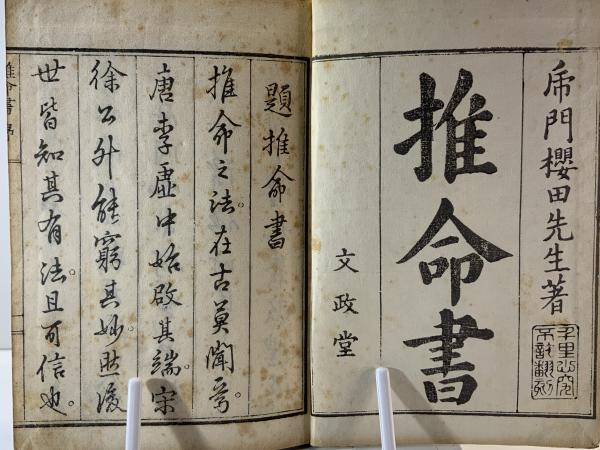 乕門櫻田先生著
推命書
文政堂
千里必究
不許翻刻
題推命書
推命之法。在古莫聞焉。
唐李虛中始啟其端。宋
徐公升能窮其妙。然後
世皆知其有法。且可信也。
推命書序